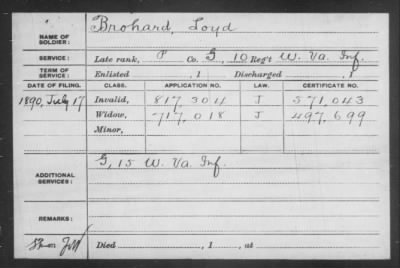 NAME OF SOLDIER: Brohard, Loyd
SERVICE: Late rank, P Co. G, 10 Reg't W. Va. Inf.
TERM OF SERVICE: Enlisted , 1 Discharged , 1
DATE OF FILING. CLASS. APPLICATION NO. LAW. CERTIFICATE NO.
1890, July 17 Invalid, 817,304 J 571,043
Widow, 717,018 J 497,699
Minor,
ADDITIONAL SERVICES: G, 15 W. Va. Inf.
REMARKS:
Died , 1 , at